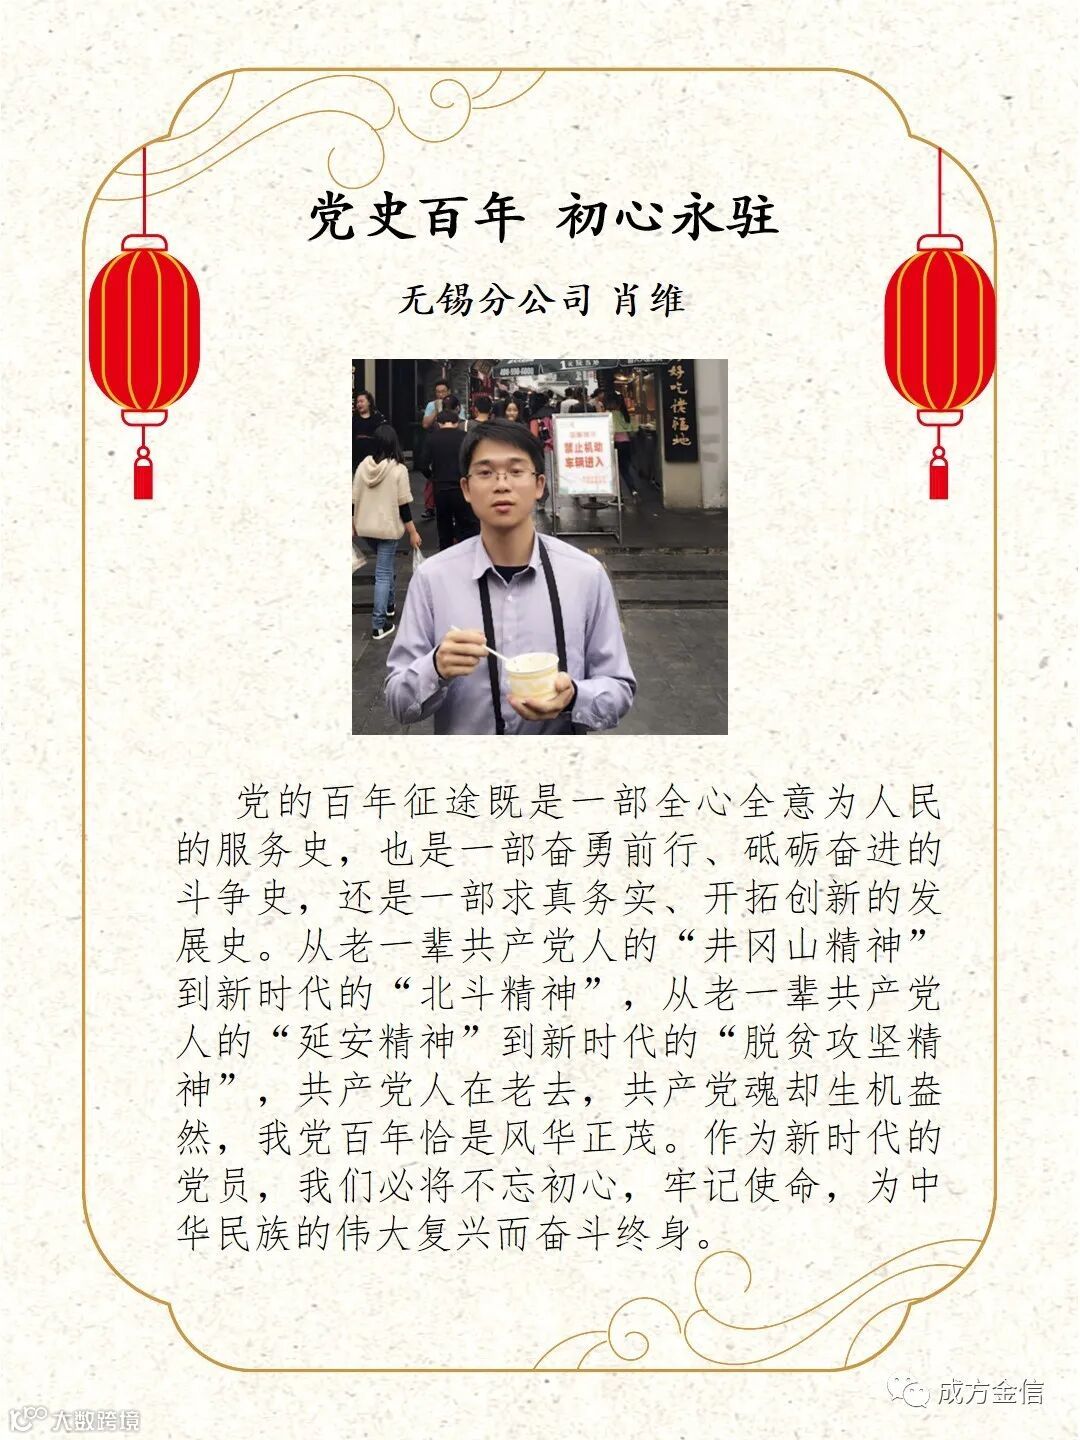 党史百年 初心永驻
无锡分公司 肖维
400-990-6000
好吃佬福地
禁止机动
车辆进入
党的百年征途既是一部全心全意为人民
的服务史，也是一部奋勇前行、砥砺奋进的
斗争史，还是一部求真务实、开拓创新的发
展史。从老一辈共产党人的“井冈山精神”
到新时代的“北斗精神”，从老一辈共产党
人的“延安精神”到新时代的“脱贫攻坚精
神”，共产党人在老去，共产党魂却生机盎
然，我党百年恰是风华正茂。作为新时代的
党员，我们必将不忘初心，牢记使命，为中
华民族的伟大复兴而奋斗终身。
成方金信
大数跨境